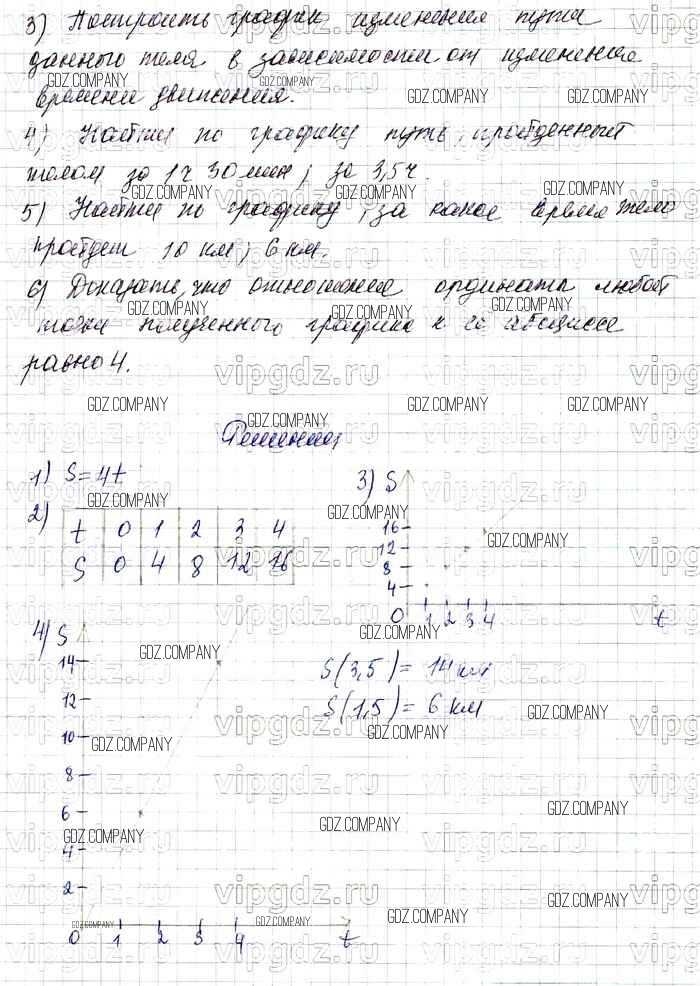 3) Построить график изменения пути
данного тела в зависимости от изменения
времени движения.
4) Найти по графику путь, пройденный
телом за 1ч 30мин; за 3,5ч.
5) Найти по графику, за какое время тело
пройдет 10 км; 6 км.
6) Доказать, что отношение ординаты любой
точки полученного графика к ее абсциссе
равно 4.
Решение
1) S=4t
2)
t 0 1 2 3 4
S 0 4 8 12 16
3) S
16
12
8
4
0 1 2 3 4 t
4) S
14
12
10
8
6
4
2
0 1 2 3 4 t
S(3,5) = 14 км
S(1,5) = 6 км
GDZ.COMPANY
vipgdz.ru